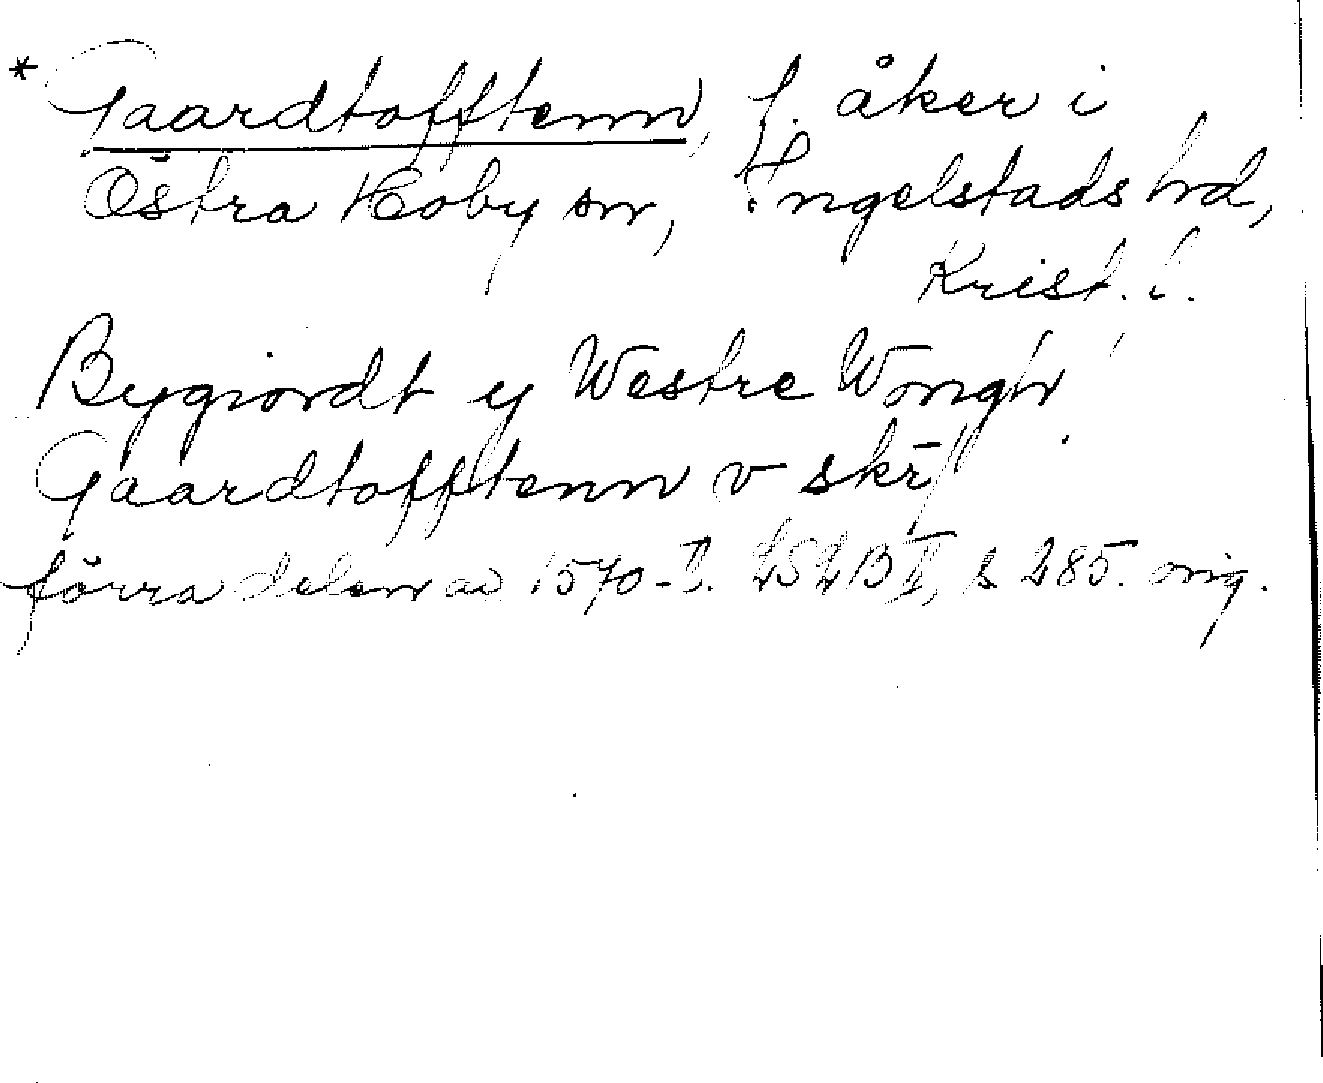 * Gaardtofftenn, f. åker i
Östra Hoby sn, Ingelstads hd,
Krist. l.
Bygiordt y Westre Wongh
Gaardtofftenn v skr̄
förra delen av 1570-t. LSLB II, s 285. orig.